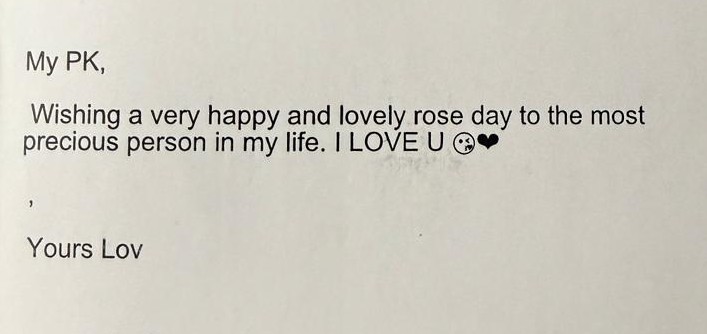 My PK,
Wishing a very happy and lovely rose day to the most
precious person in my life. I LOVE U 😘❤
,
Yours Lov